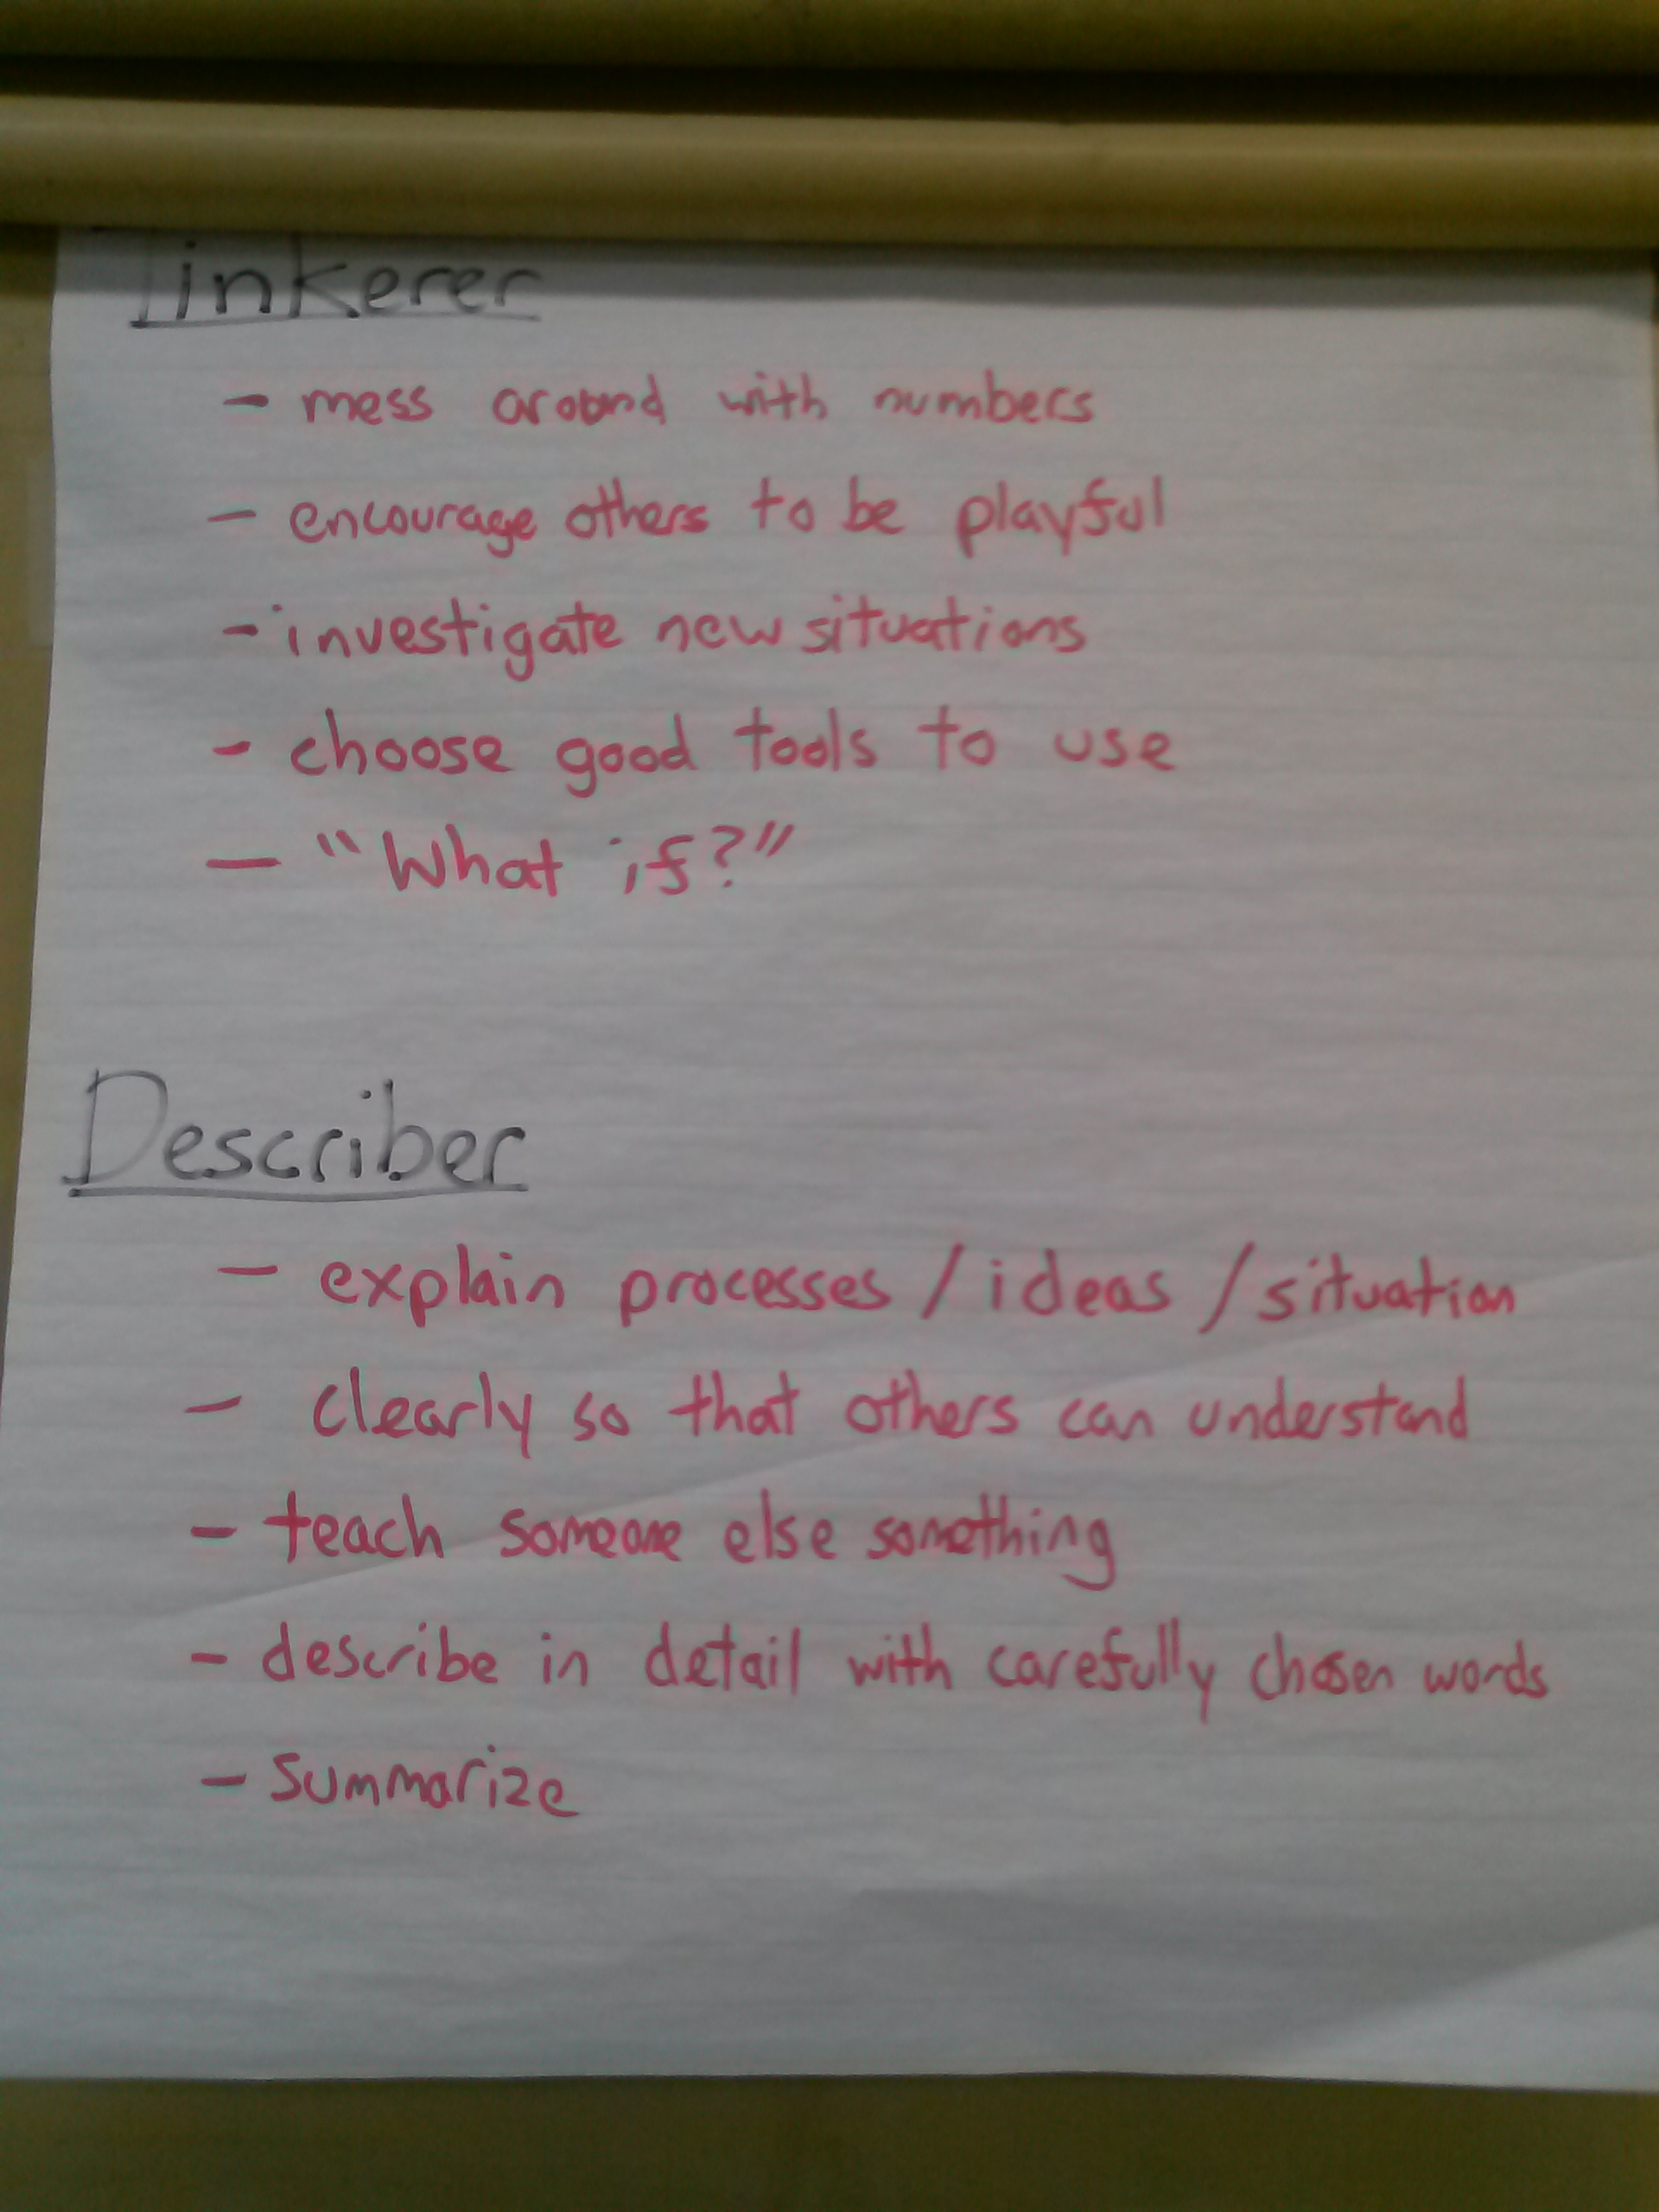 Tinkerer
- mess around with numbers
- encourage others to be playful
- investigate new situations
- choose good tools to use
- "What if?"
Describer
- explain processes / ideas / situation
- clearly so that others can understand
- teach someone else something
- describe in detail with carefully chosen words
- summarize